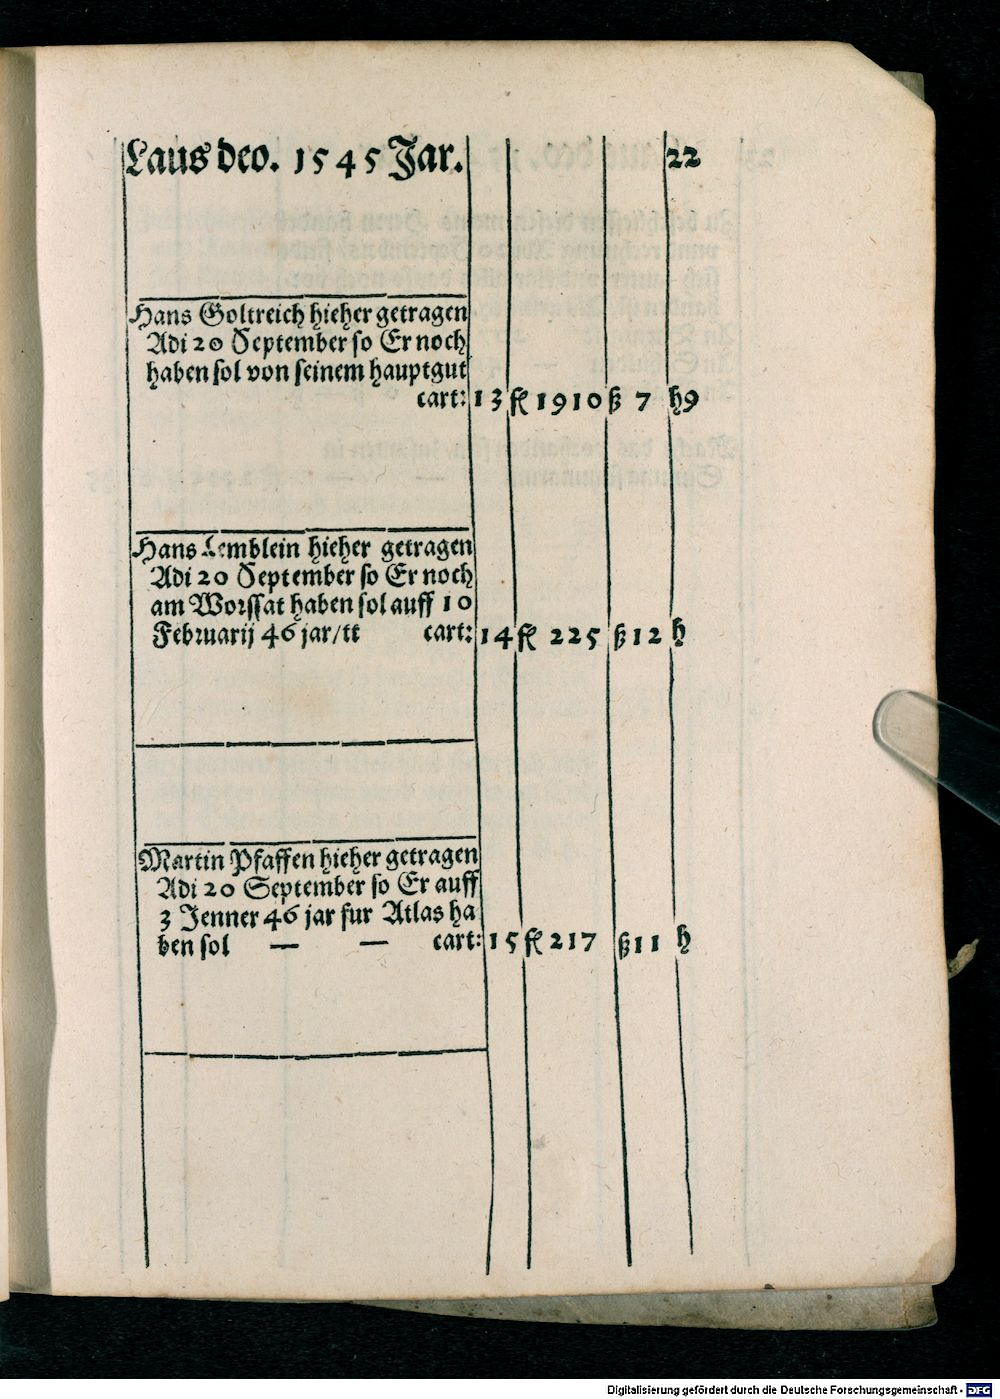 Laus deo. 1545 Jar. 22
Hans Goltreich hieher getragen
Adi 20 September so Er noch
haben sol von seinem hauptgut
cart: 13 fl 1910 ß 7 h9
Hans Lemblein hieher getragen
Adi 20 September so Er noch
am Worssat haben sol auff 10
Februarij 46 jar/tt cart: 14 fl 225 ß 12 h
Martin Pfaffen hieher getragen
Adi 20 September so Er auff
3 Jenner 46 jar fur Atlas ha
ben sol — — cart: 15 fl 217 ß 11 h
Digitalisierung gefördert durch die Deutsche Forschungsgemeinschaft - DFG